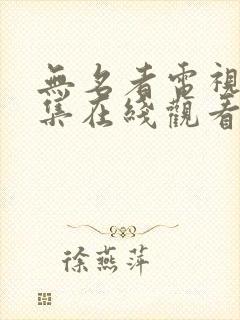 無名者電視
集在綫觀看
徐燕萍